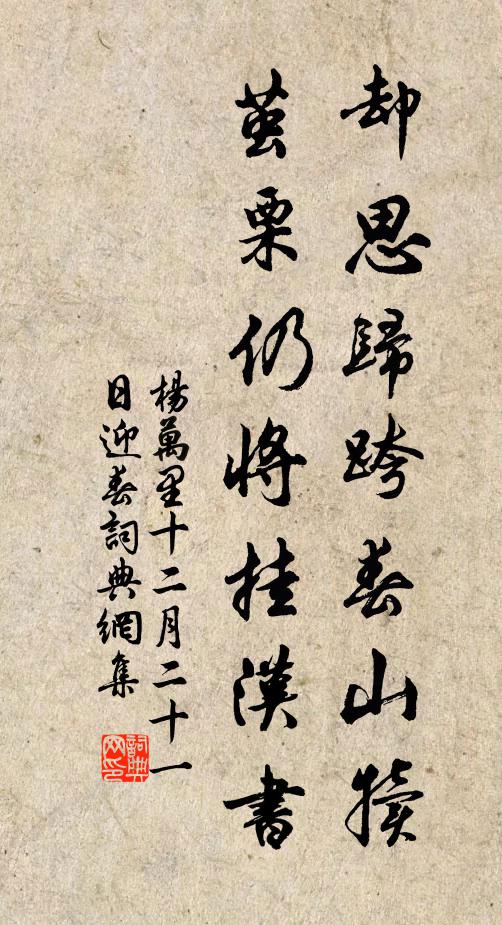 却思歸跨春山犢
茧栗仍将挂漢書
楊萬里十二月二十一
日迎春詞典網集
詞典
网印